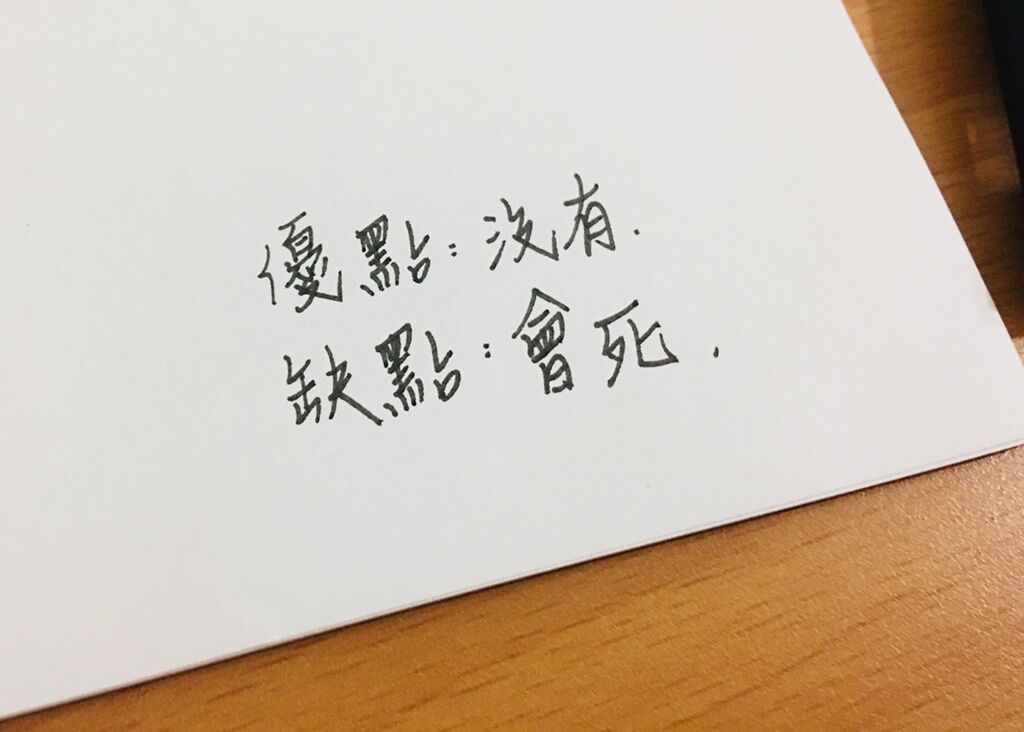 優點:沒有.
缺點:會死.